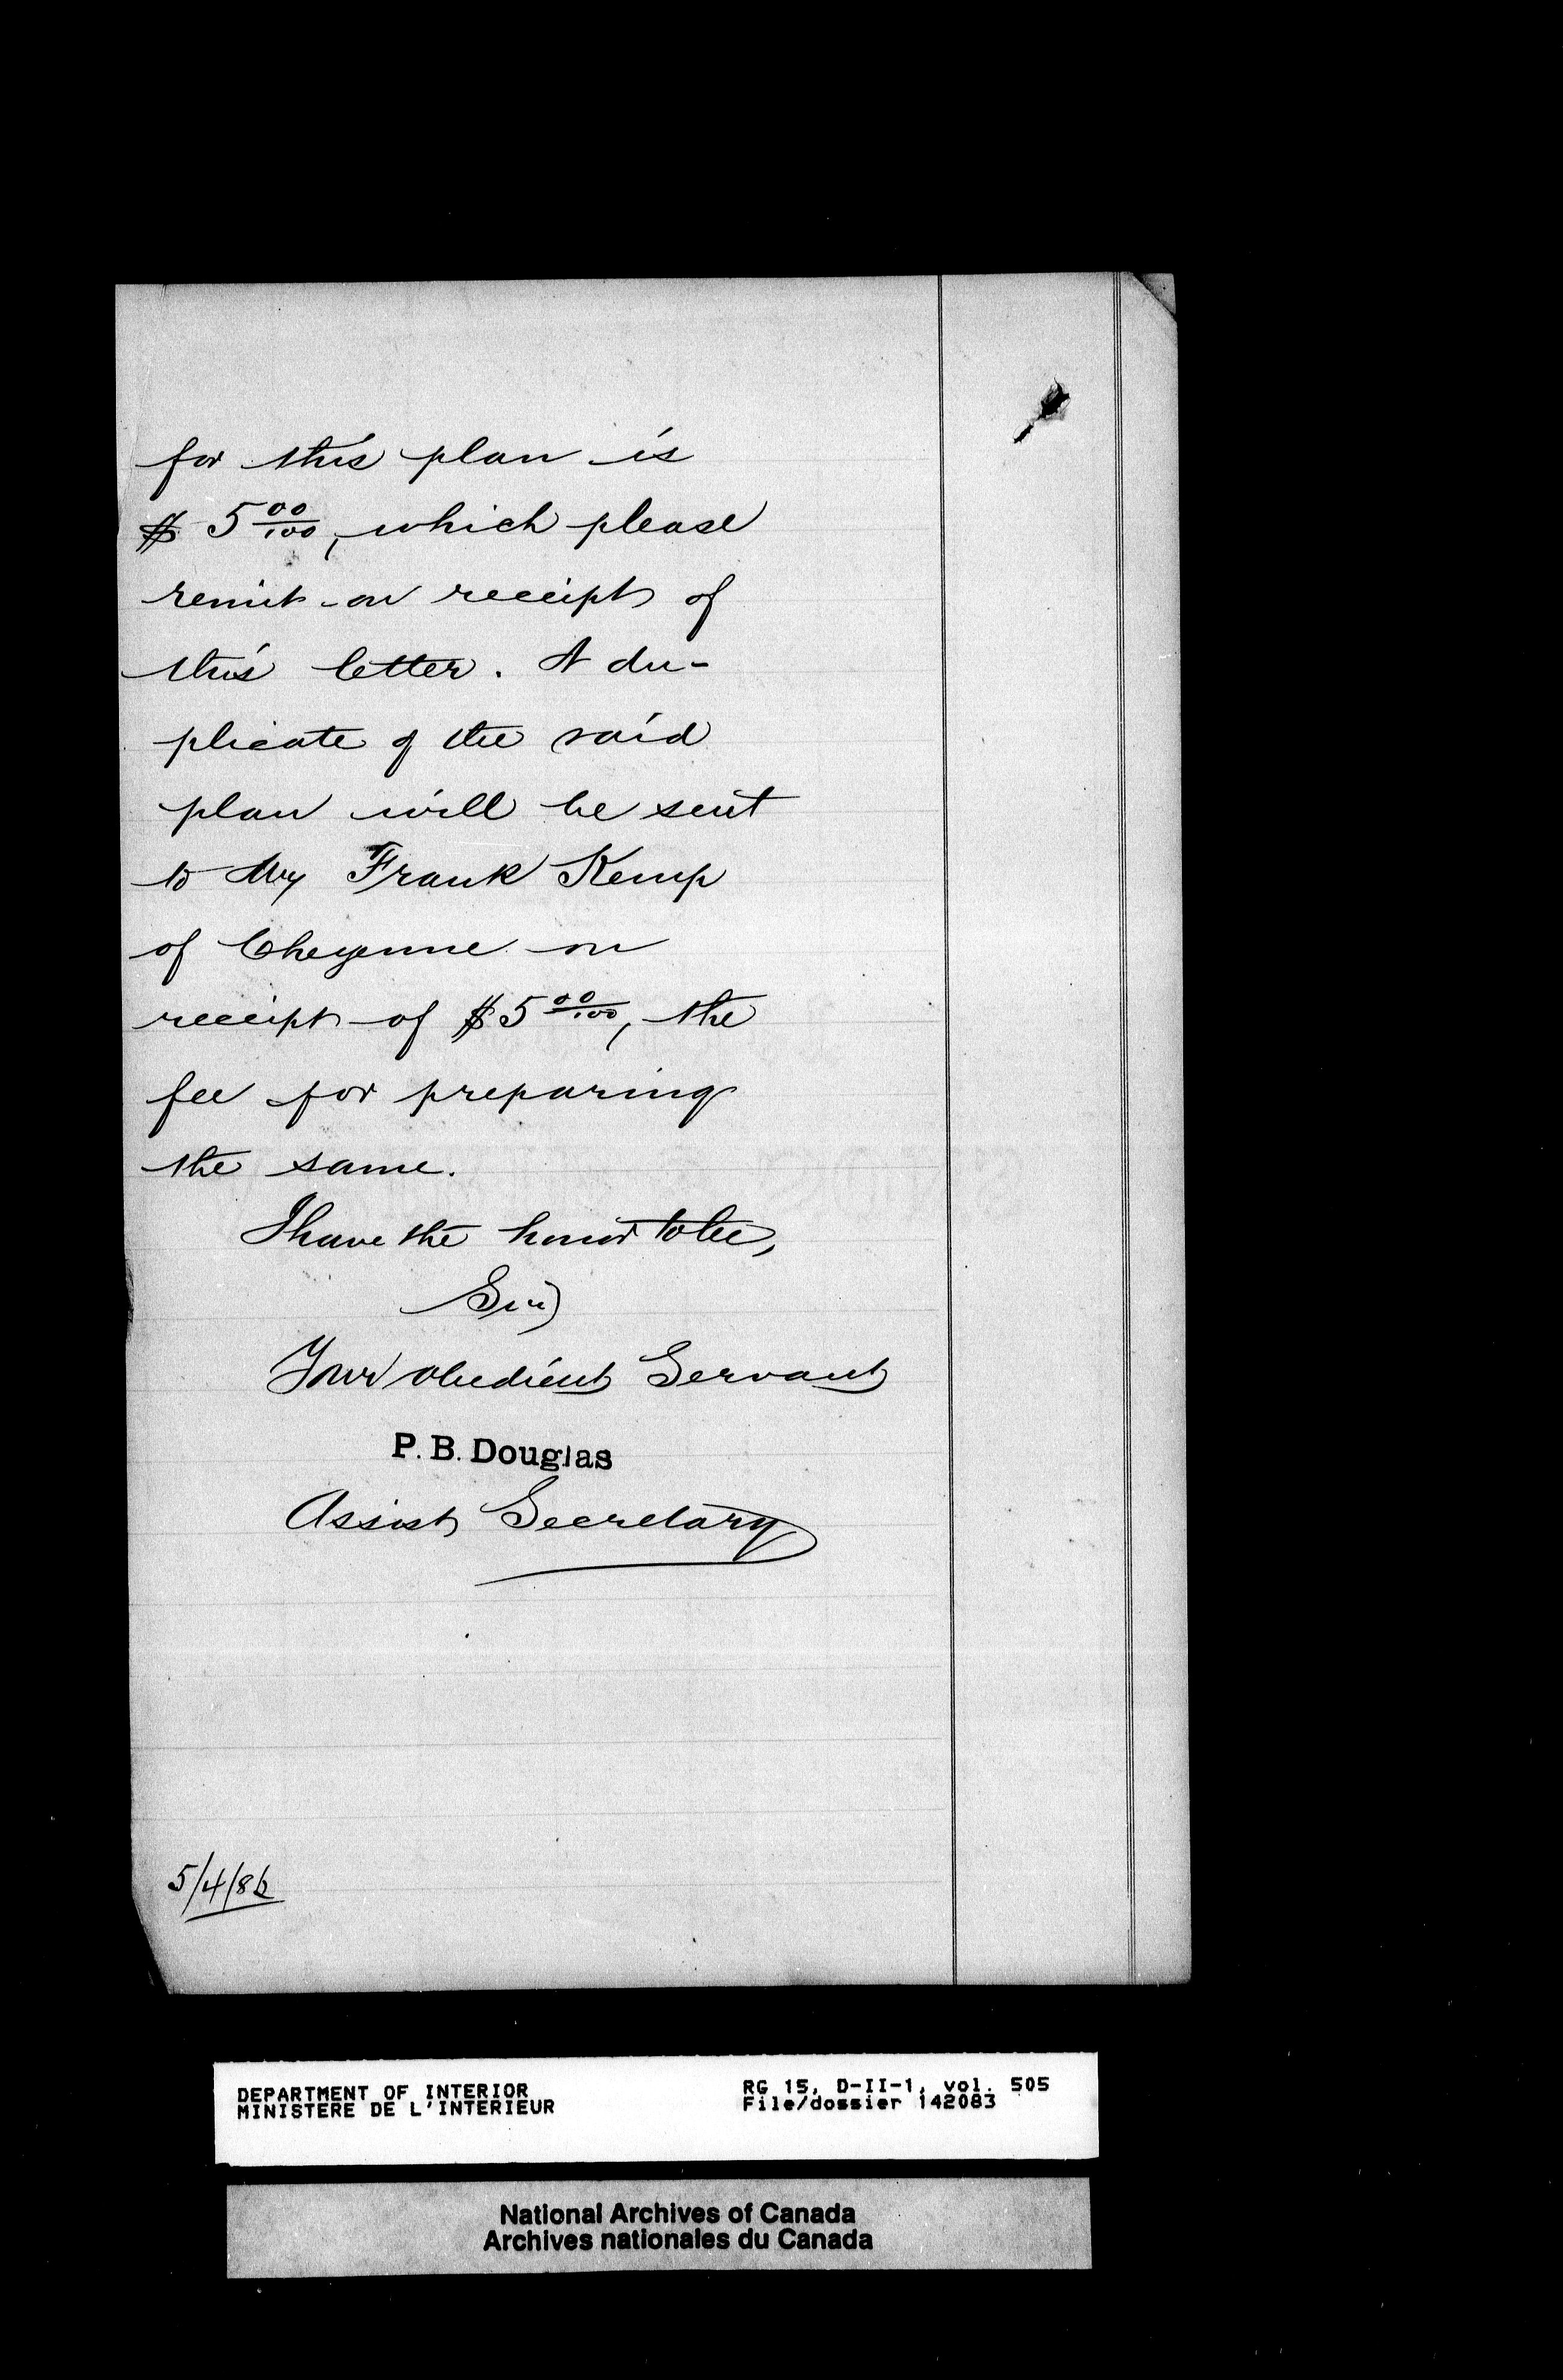 for this plan is
$ 5 00/100, which please
remit on receipt of
this letter. A du-
plicate of the said
plan will be sent
to Mr Frank Kemp
of Cheyenne on
receipt of $5 00/100, the
fee for preparing
the same.
I have the honor to be,
Sir
Your obedient Servant
P. B. Douglas
Assist Secretary
5/4/86
DEPARTMENT OF INTERIOR
MINISTERE DE L'INTERIEUR
RG 15, D-II-1, vol. 505
File/dossier 142083
National Archives of Canada
Archives nationales du Canada